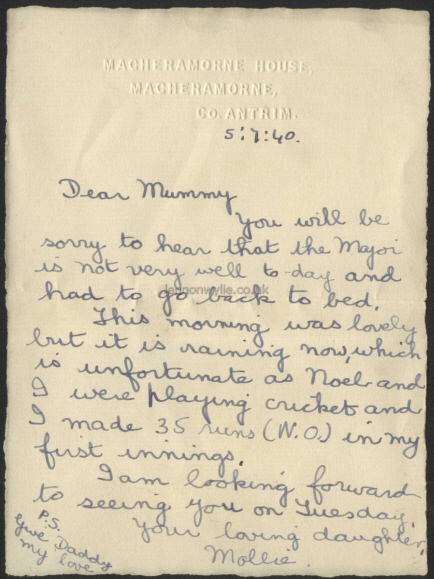 MAGHERAMORNE HOUSE,
MAGHERAMORNE,
Co. ANTRIM.
5:7:40.
Dear Mummy
You will be
sorry to hear that the Major
is not very well to-day and
lennonwylie.co.uk
had to go back to bed.
This morning was lovely
but it is raining now, which
is unfortunate as Noel and
I were playing cricket and
I made 35 runs (N.O.) in my
first innings.
I am looking forward
to seeing you on Tuesday.
Your loving daughter,
Mollie.
P.S.
Give Daddy
my love